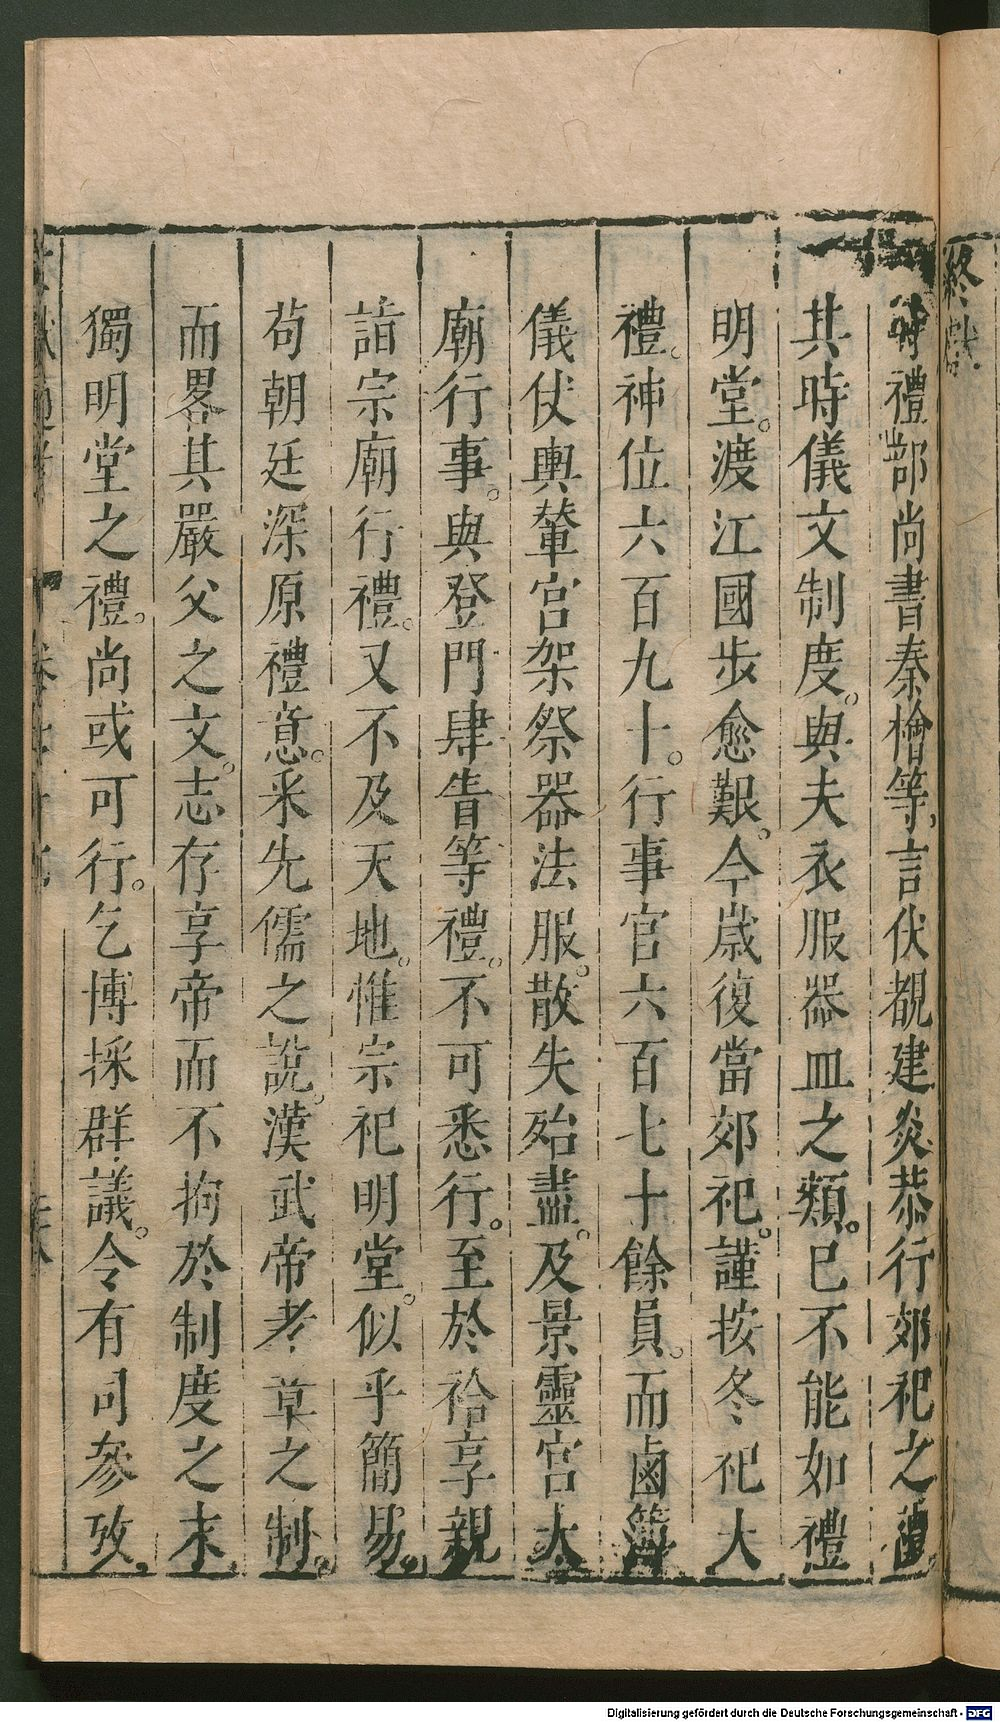 時禮部尚書秦檜等言伏覩建炎恭行郊祀之禮
其時儀文制度。與夫衣服器皿之類。已不能如禮
明堂。渡江國步愈艱。今歲復當郊祀。謹按冬祀大
禮。神位六百九十。行事官六百七十餘員。而鹵簿
儀仗輿輦宮架祭器法服。散失殆盡。及景靈宮太
廟行事。與登門肆眚等禮。不可悉行。至於祫享親
詣宗廟行禮。又不及天地。惟宗祀明堂。似乎簡易。
苟朝廷深原禮意。采先儒之說。漢武帝考草之制。
而畧其嚴父之文。志存享帝而不拘於制度之末。
獨明堂之禮。尚或可行。乞博採群議。令有司參攷。
Digitalisierung gefördert durch die Deutsche Forschungsgemeinschaft - DFG